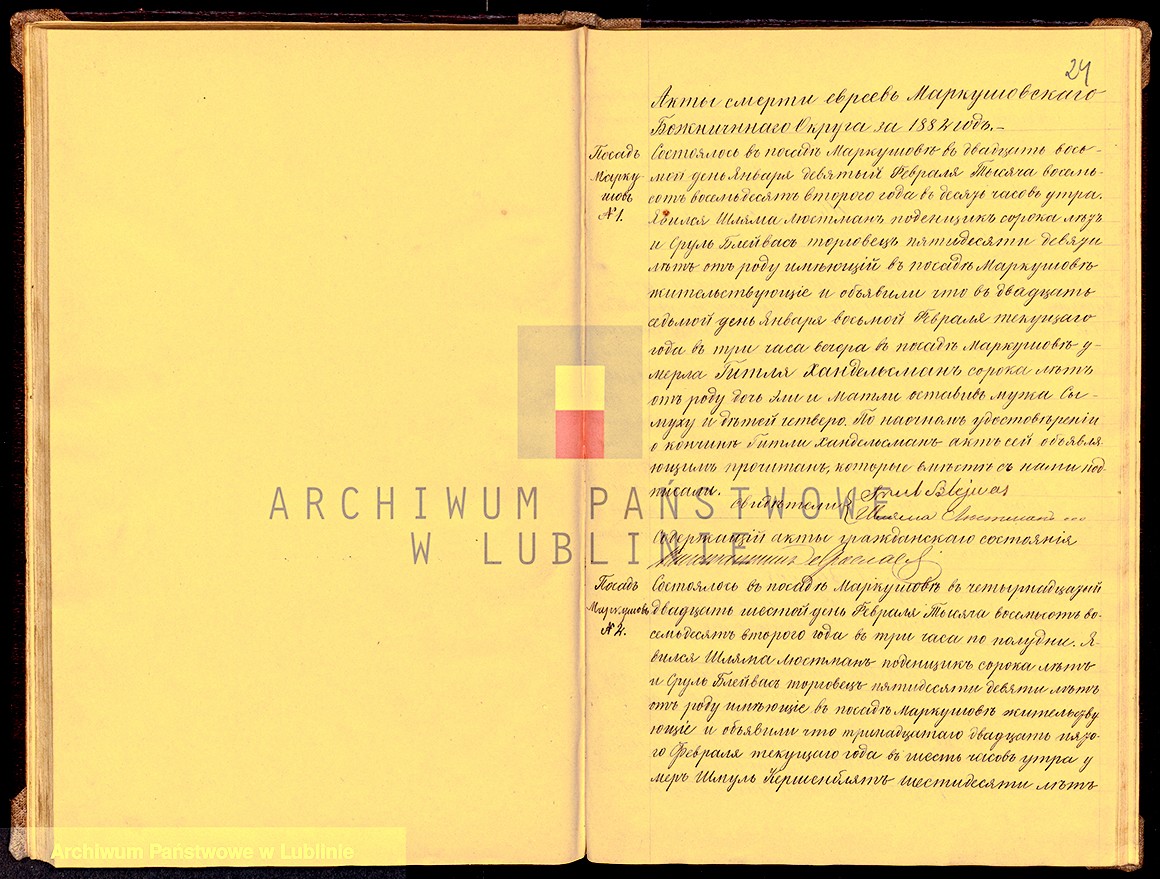 24
Акты смерти евреевъ Маркушовскаго
Божничнаго Округа за 1882 годъ.—
Посадъ
Марку-
шовъ
№ 1.
Состоялось въ посадѣ Маркушовѣ въ двадцать вось-
мой день Января девятый Февраля Тысяча восемь-
сотъ восемьдесятъ второго года въ десять часовъ утра.
Явился Шляма Люстманъ поденщикъ сорока лѣтъ
и Сруль Блейвасъ торговецъ пятидесяти девяти
лѣтъ отъ роду имѣющій въ посадѣ Маркушовѣ
жительствующіе и объявили что въ двадцать
седьмой день Января восьмой Февраля текущаго
года въ три часа вечера въ посадѣ Маркушовѣ у-
мерла Гитля Хандельсманъ сорока лѣтъ
отъ роду дочь и Матли оставивъ мужа
и дѣтей четверо. По наочномъ удостовѣреніи
о кончинѣ Гитли Хандельсманъ актъ сей объявля-
ющимъ прочитанъ, которые вмѣстѣ съ нами под-
писали.
Свидѣтели Srul Blejwas
Шляма Люстманъ
Содержащій акты гражданскаго состоянія
Посадъ
Маркушовъ
№ 2.
Состоялось въ посадѣ Маркушовѣ въ четырнадцатый
двадцать шестой день Февраля Тысяча восемьсотъ во-
семьдесятъ второго года въ три часа по полудни. Я-
вился Шляма Люстманъ поденщикъ сорока лѣтъ
и Сруль Блейвасъ торговецъ пятидесяти девяти лѣтъ
отъ роду имѣющіе въ посадѣ Маркушовѣ жительству
ющіе и объявили что тринадцатаго двадцать пято-
го Февраля текущаго года въ шесть часовъ утра у
меръ Шмуль Кершенблятъ шестидесяти лѣтъ
ARCHIWUM PAŃSTWOWE
W LUBLINIE
Archiwum Panstwowe w Lublinie